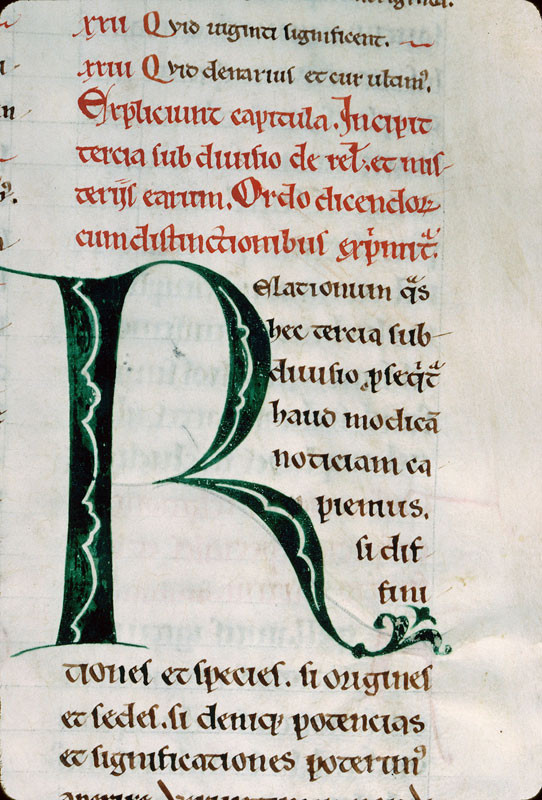 xxii Quid uiginti significent.
xxiii Quid denarius et cur ultim᷒.
Expliciunt capitula. Incipit
tercia sub diuisio de rel̅. et mis
terijs earum. Ordo dicendoꝝ
cum distinctionibus exp̅mit᷑.
Relationum q̅s
hec tercia sub
diuisio ꝓseq̅t᷑
haud modicā
noticiam ca
piemus.
si dif
fini
tiones et species. si origines
et sedes. si deniq; potencias
et significationes poterim᷒